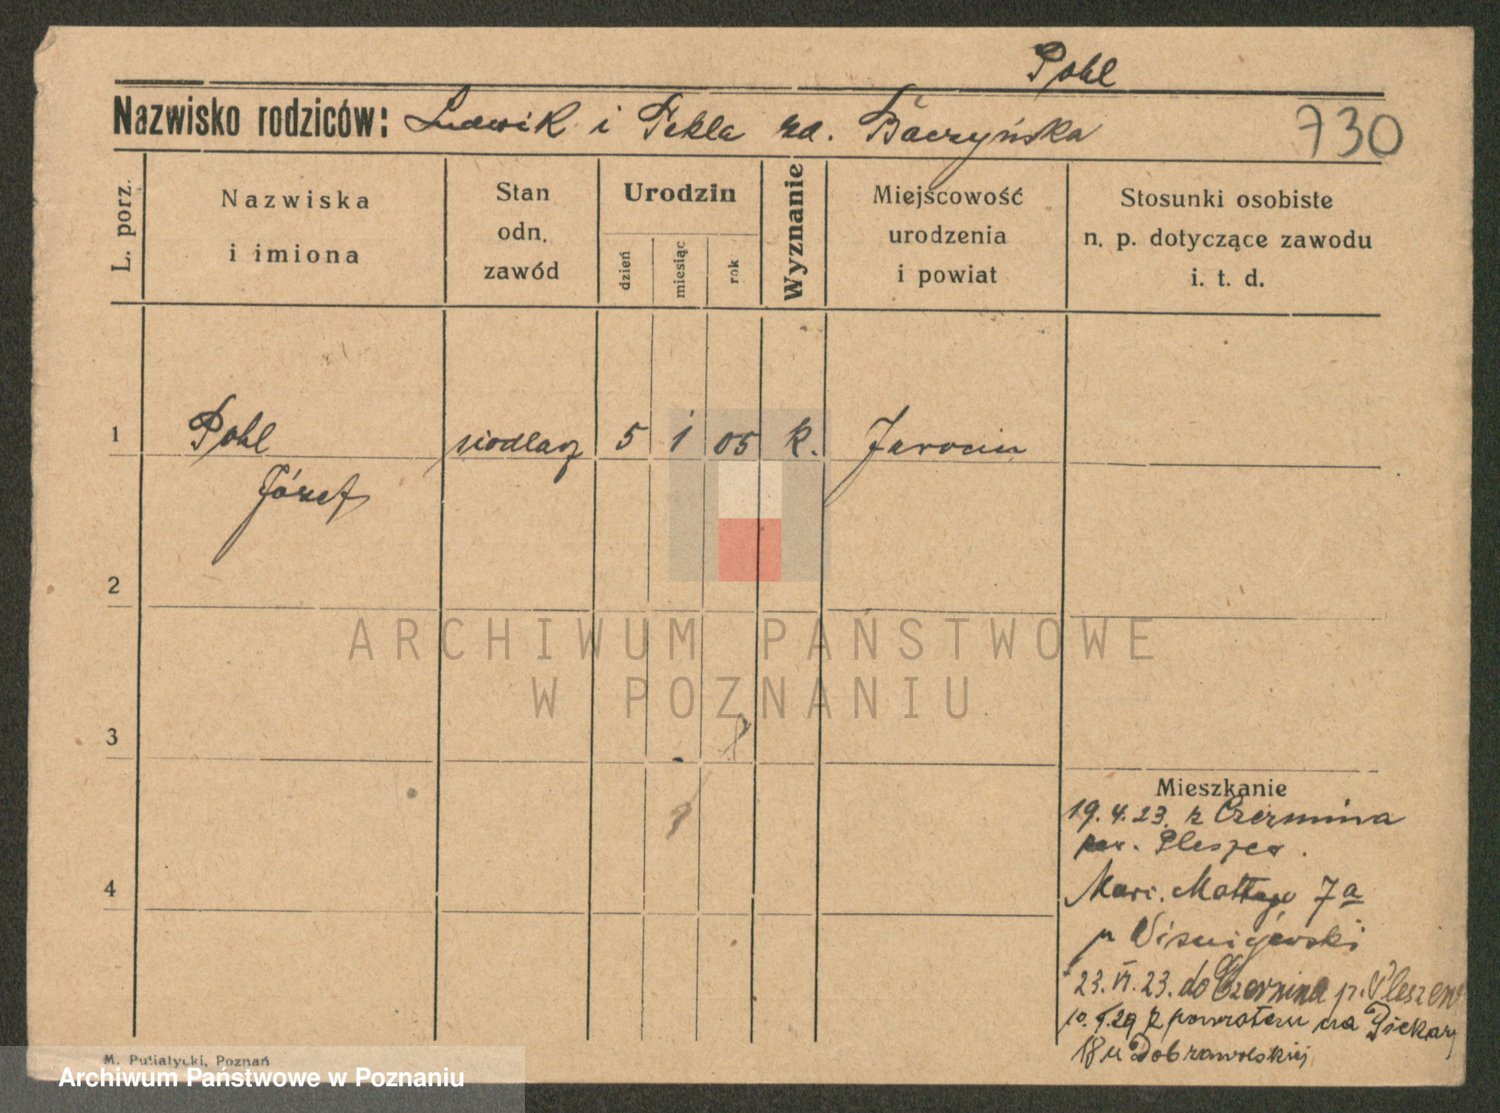 Pohl
Nazwisko rodziców: Ludwik i Tekla zd. Baczyńska
730
L. porz.
Nazwiska
i imiona
Stan
odn.
zawód
Urodzin
dzień
miesiąc
rok
Wyznanie
Miejscowość
urodzenia
i powiat
Stosunki osobiste
n. p. dotyczące zawodu
i. t. d.
1 Pohl siodlarz 5 1 05 k. Jarocin
Józef
2
ARCHIWUM PAŃSTWOWE
W POZNANIU
3
Mieszkanie
19.4.23. z Czermina
pow. Pleszew.
4
7a
p Wiśniewski
23.VI.23. do Czermina p. Pleszew
z powrotem na Piekary
18 u Dobrowolskiej
M. Putiatycki, Poznań
Archiwum Państwowe w Poznaniu